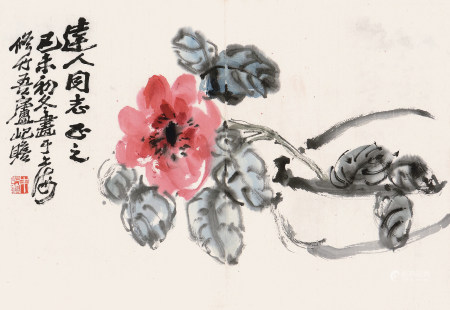 達人同志正之
己未初冬畫于上海
修竹吾廬屺瞻